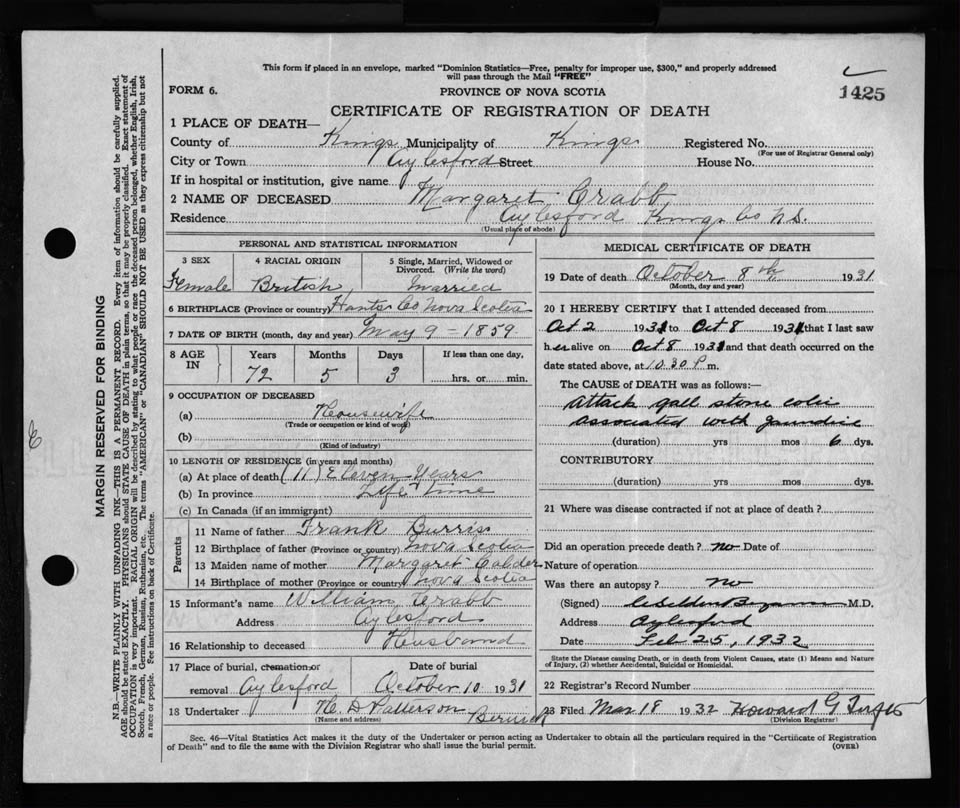 This form if placed in an envelope, marked "Dominion Statistics—Free, penalty for improper use, $300," and properly addressed
will pass through the Mail "FREE"
1425
FORM 6.
PROVINCE OF NOVA SCOTIA
CERTIFICATE OF REGISTRATION OF DEATH
1 PLACE OF DEATH—
County of Kings Municipality of Kings Registered No.
(For use of Registrar General only)
City or Town Aylesford Street House No.
If in hospital or institution, give name
2 NAME OF DECEASED Margaret Crabb
Residence Aylesford Kings Co N.S.
(Usual place of abode)
PERSONAL AND STATISTICAL INFORMATION
3 SEX 4 RACIAL ORIGIN 5 Single, Married, Widowed or
Divorced. (Write the word)
Female British Married
6 BIRTHPLACE (Province or country) Hants Co Nova Scotia
7 DATE OF BIRTH (month, day and year) May 9 = 1859
8 AGE IN Years Months Days If less than one day,
72 5 3 hrs. or min.
9 OCCUPATION OF DECEASED
(a) Housewife
(Trade or occupation or kind of work)
(b)
(Kind of industry)
10 LENGTH OF RESIDENCE (in years and months)
(a) At place of death (11) Eleven Years
(b) In province Life Time
(c) In Canada (if an immigrant)
Parents
11 Name of father Frank Burriss
12 Birthplace of father (Province or country) Nova Scotia
13 Maiden name of mother Margaret Calder
14 Birthplace of mother (Province or country) Nova Scotia
15 Informant's name William Crabb
Address Aylesford
16 Relationship to deceased Husband
17 Place of burial, cremation or Date of burial
removal Aylesford October 10 1931
18 Undertaker H. D Patterson Berwick
(Name and address)
MEDICAL CERTIFICATE OF DEATH
19 Date of death October 8th 1931
(Month, day and year)
20 I HEREBY CERTIFY that I attended deceased from
Oct 2 1931 to Oct 8 1931 that I last saw
her alive on Oct 8 1931 and that death occurred on the
date stated above, at 10.30 P m.
The CAUSE of DEATH was as follows:—
Attack gall stone colic
associated with jaundice
(duration) yrs mos 6 dys.
CONTRIBUTORY
(duration) yrs mos dys.
21 Where was disease contracted if not at place of death?
Did an operation precede death? no Date of
Nature of operation
Was there an autopsy? no
(Signed) M.D.
Address Aylesford
Date Feb 25, 1932
State the Disease causing Death, or in death from Violent Causes, state (1) Means and Nature
of Injury, (2) whether Accidental, Suicidal or Homicidal.
22 Registrar's Record Number
23 Filed Mar 18 1932 Howard G
(Division Registrar)
Sec. 46—Vital Statistics Act makes it the duty of the Undertaker or person acting as Undertaker to obtain all the particulars required in the "Certificate of Registration
of Death" and to file the same with the Division Registrar who shall issue the burial permit.
(OVER)
MARGIN RESERVED FOR BINDING
N.B.—WRITE PLAINLY WITH UNFADING INK—THIS IS A PERMANENT RECORD. Every item of information should be carefully supplied.
AGE should be stated EXACTLY. PHYSICIANS should STATE CAUSE OF DEATH in plain terms, so that it may be properly classified. Exact statement of
OCCUPATION is very important. RACIAL ORIGIN will be described by stating to what people or race the deceased person belonged, whether English, Irish,
Scotch, French, German, Russian, Ruthenian, etc. The terms "AMERICAN" or "CANADIAN" SHOULD NOT BE USED as they express citizenship but not
a race or people. Fee instructions on back of Certificate.